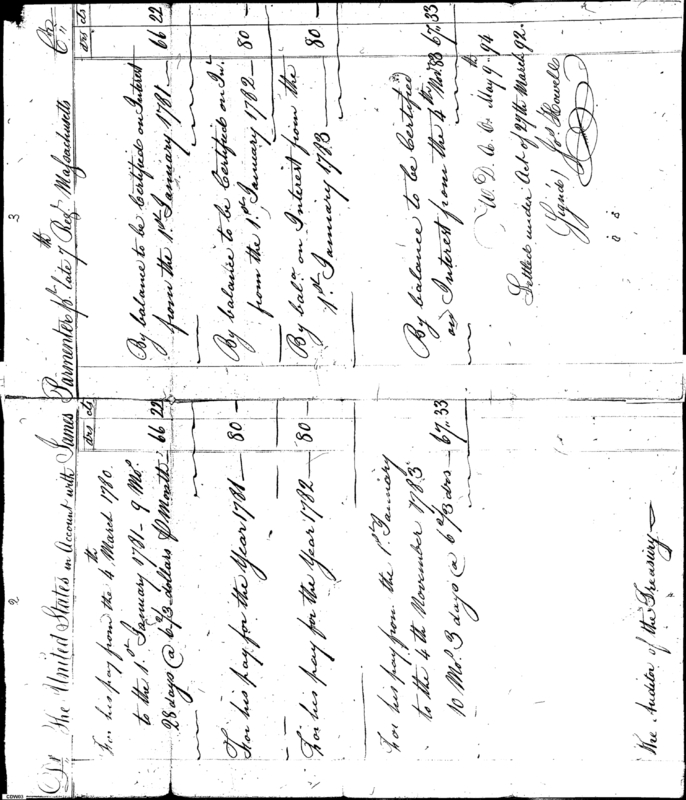 2
Dr The United States in Account with James
drs cts
For his pay from the 4th March 1780
to the 1st January 1781 - 9 Mos
28 days @ 6 2/3 dollars p Month : 66 22
For his pay for the Year 1781 — 80 —
For his pay for the Year 1782 — 80 —
For his pay from the 1st January
to the 4th November 1783
10 Mos 3 days @ 6 2/3 drs — 67.33
The Auditor of the Treasury
3
Parmenter late 7th Regt Massachusetts Cr
drs cts
By balance to be Certified on Interest
from the 1st January 1781 — 66 22
By balance to be Certified on Int.
from the 1st January 1782 — 80 —
By bala on Interest from the 80 —
1st January 1783
By balance to be Certified
and Interest from the 4th Nov. 83 67.33
W. D. A. O. May 9th - 94
Settled under Act of 27th March 92.
Signed Jos. Howell
CDW03